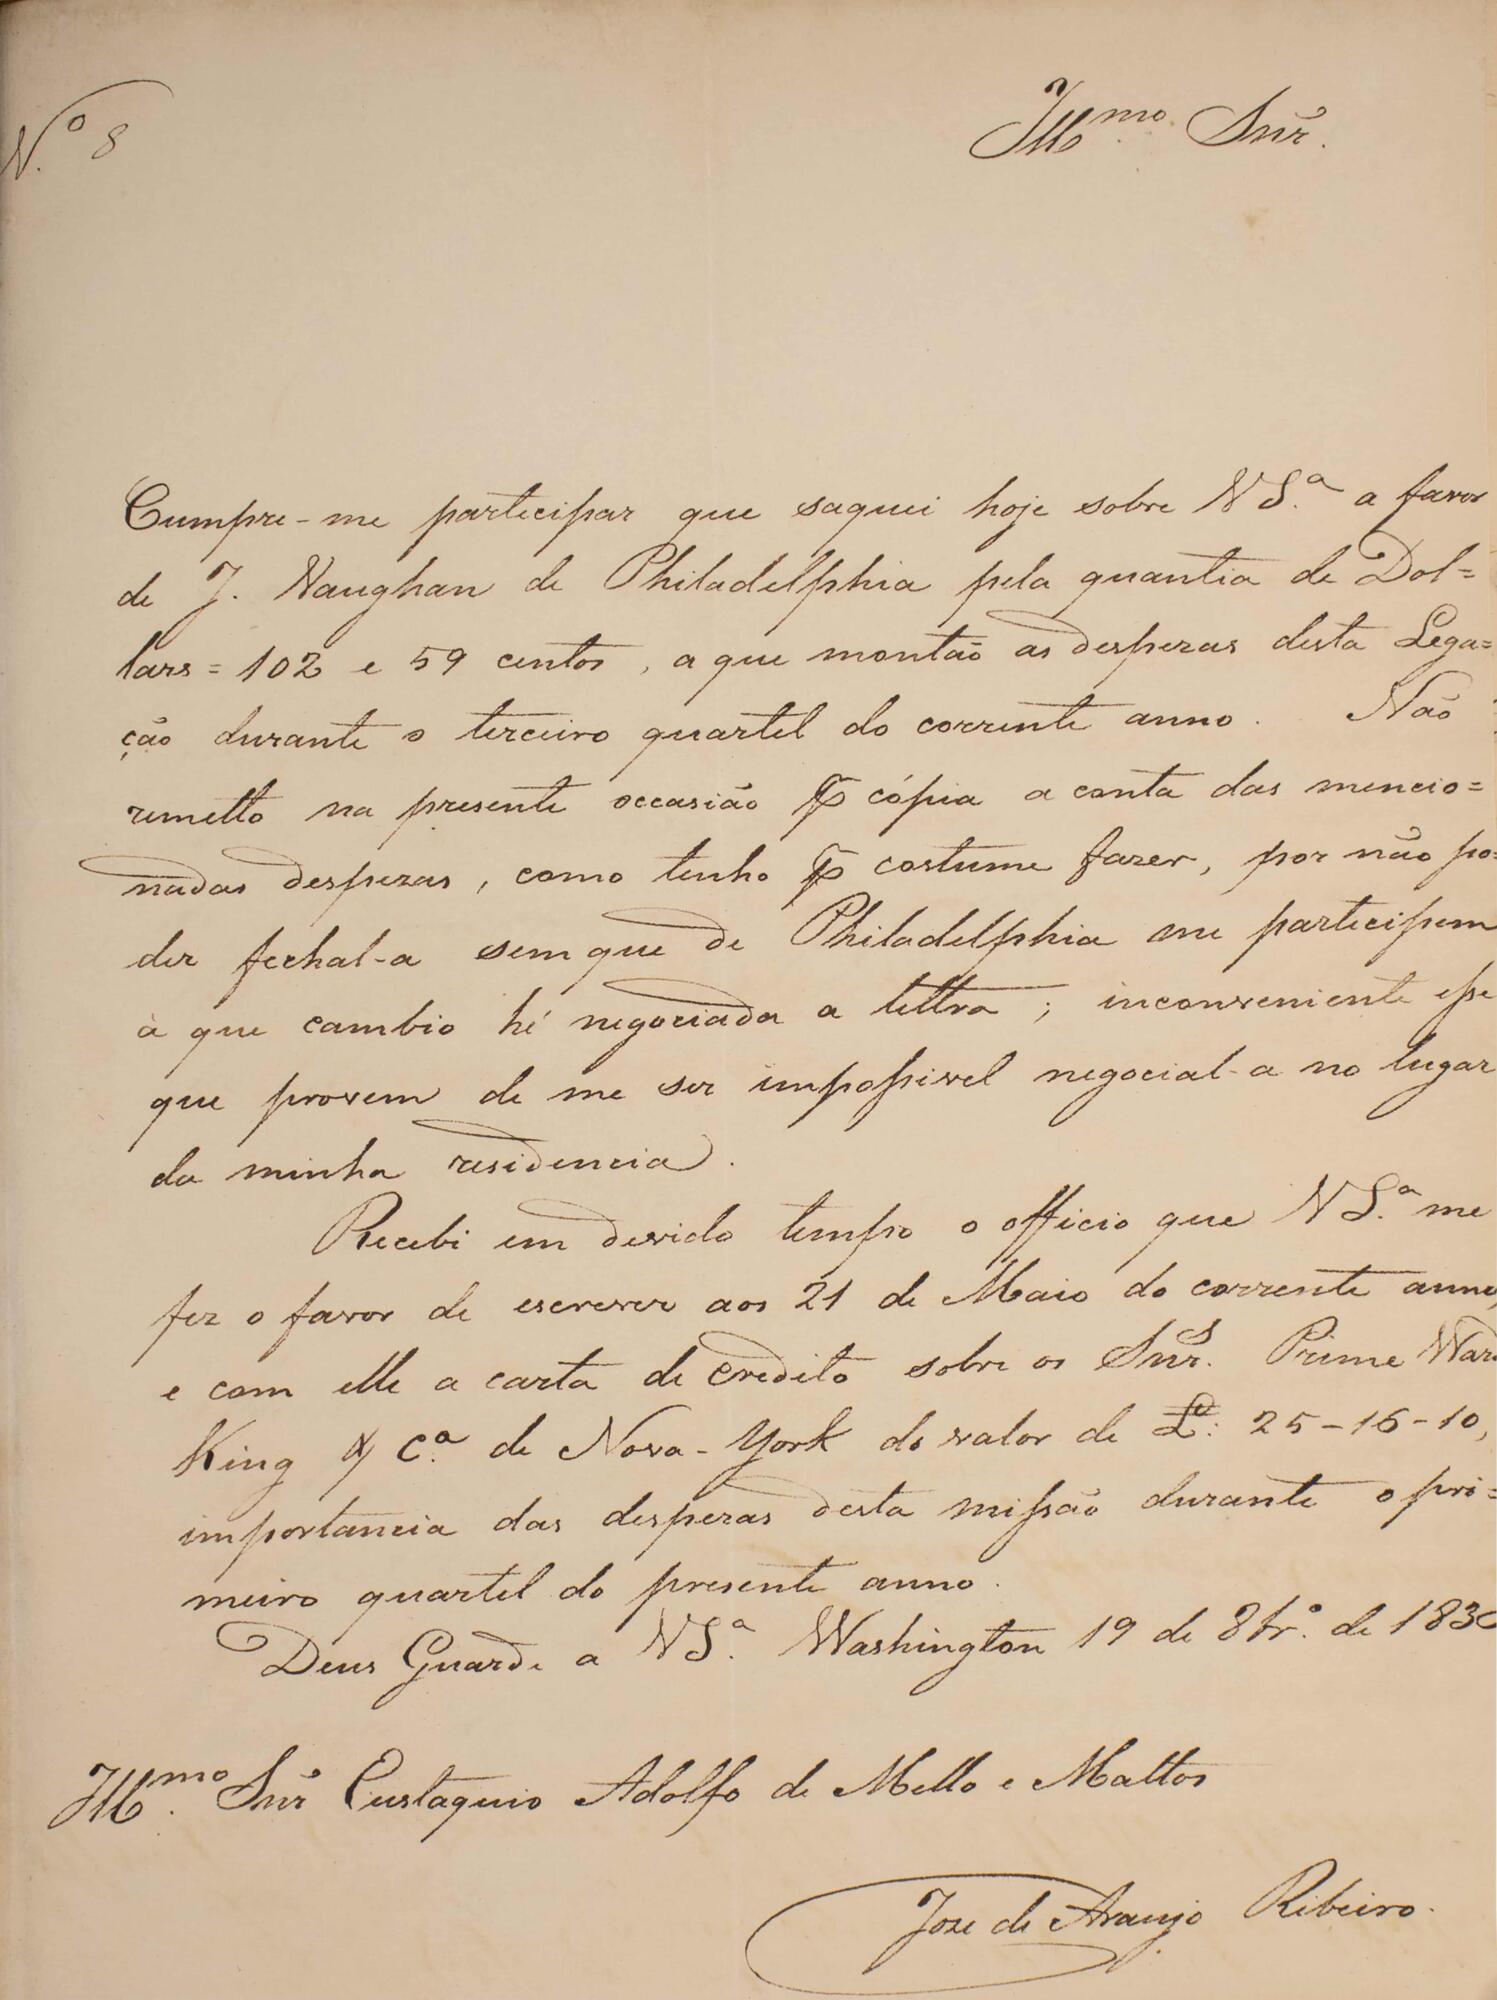 N.º 8
Illmo. Snr.
Cumpre-me participar que saquei hoje sobre V S.ª a favor
de J. Vaughan de Philadelphia pela quantia de Dol=
lars = 102 e 59 centos, a que montão as despezas desta Lega=
ção durante o terceiro quartel do corrente anno. Não
remetto na presente occasião por cópia a conta das mencio=
nadas despezas, como tenho por costume fazer, por não po=
der fechal-a sem que de Philadelphia me participem
a que cambio hé negociada a lettra; inconveniente esse
que provem de me ser impossivel negocial-a no lugar
da minha residencia.
Recebi em devido tempo o officio que V S.ª me
fez o favor de escrever aos 21 de Maio do corrente anno,
e com elle a carta de credito sobre os Snrs. Prime Ward
King & C.ª de Nova-York do valor de £: 25-16-10,
importancia das despezas desta missão durante o pri=
meiro quartel do presente anno.
Deus Guarde a V S.ª Washington 19 de 8br.º de 1830
Illmo. Snr Eustaquio Adolfo de Mello e Mattos
Jose de Araujo Ribeiro.